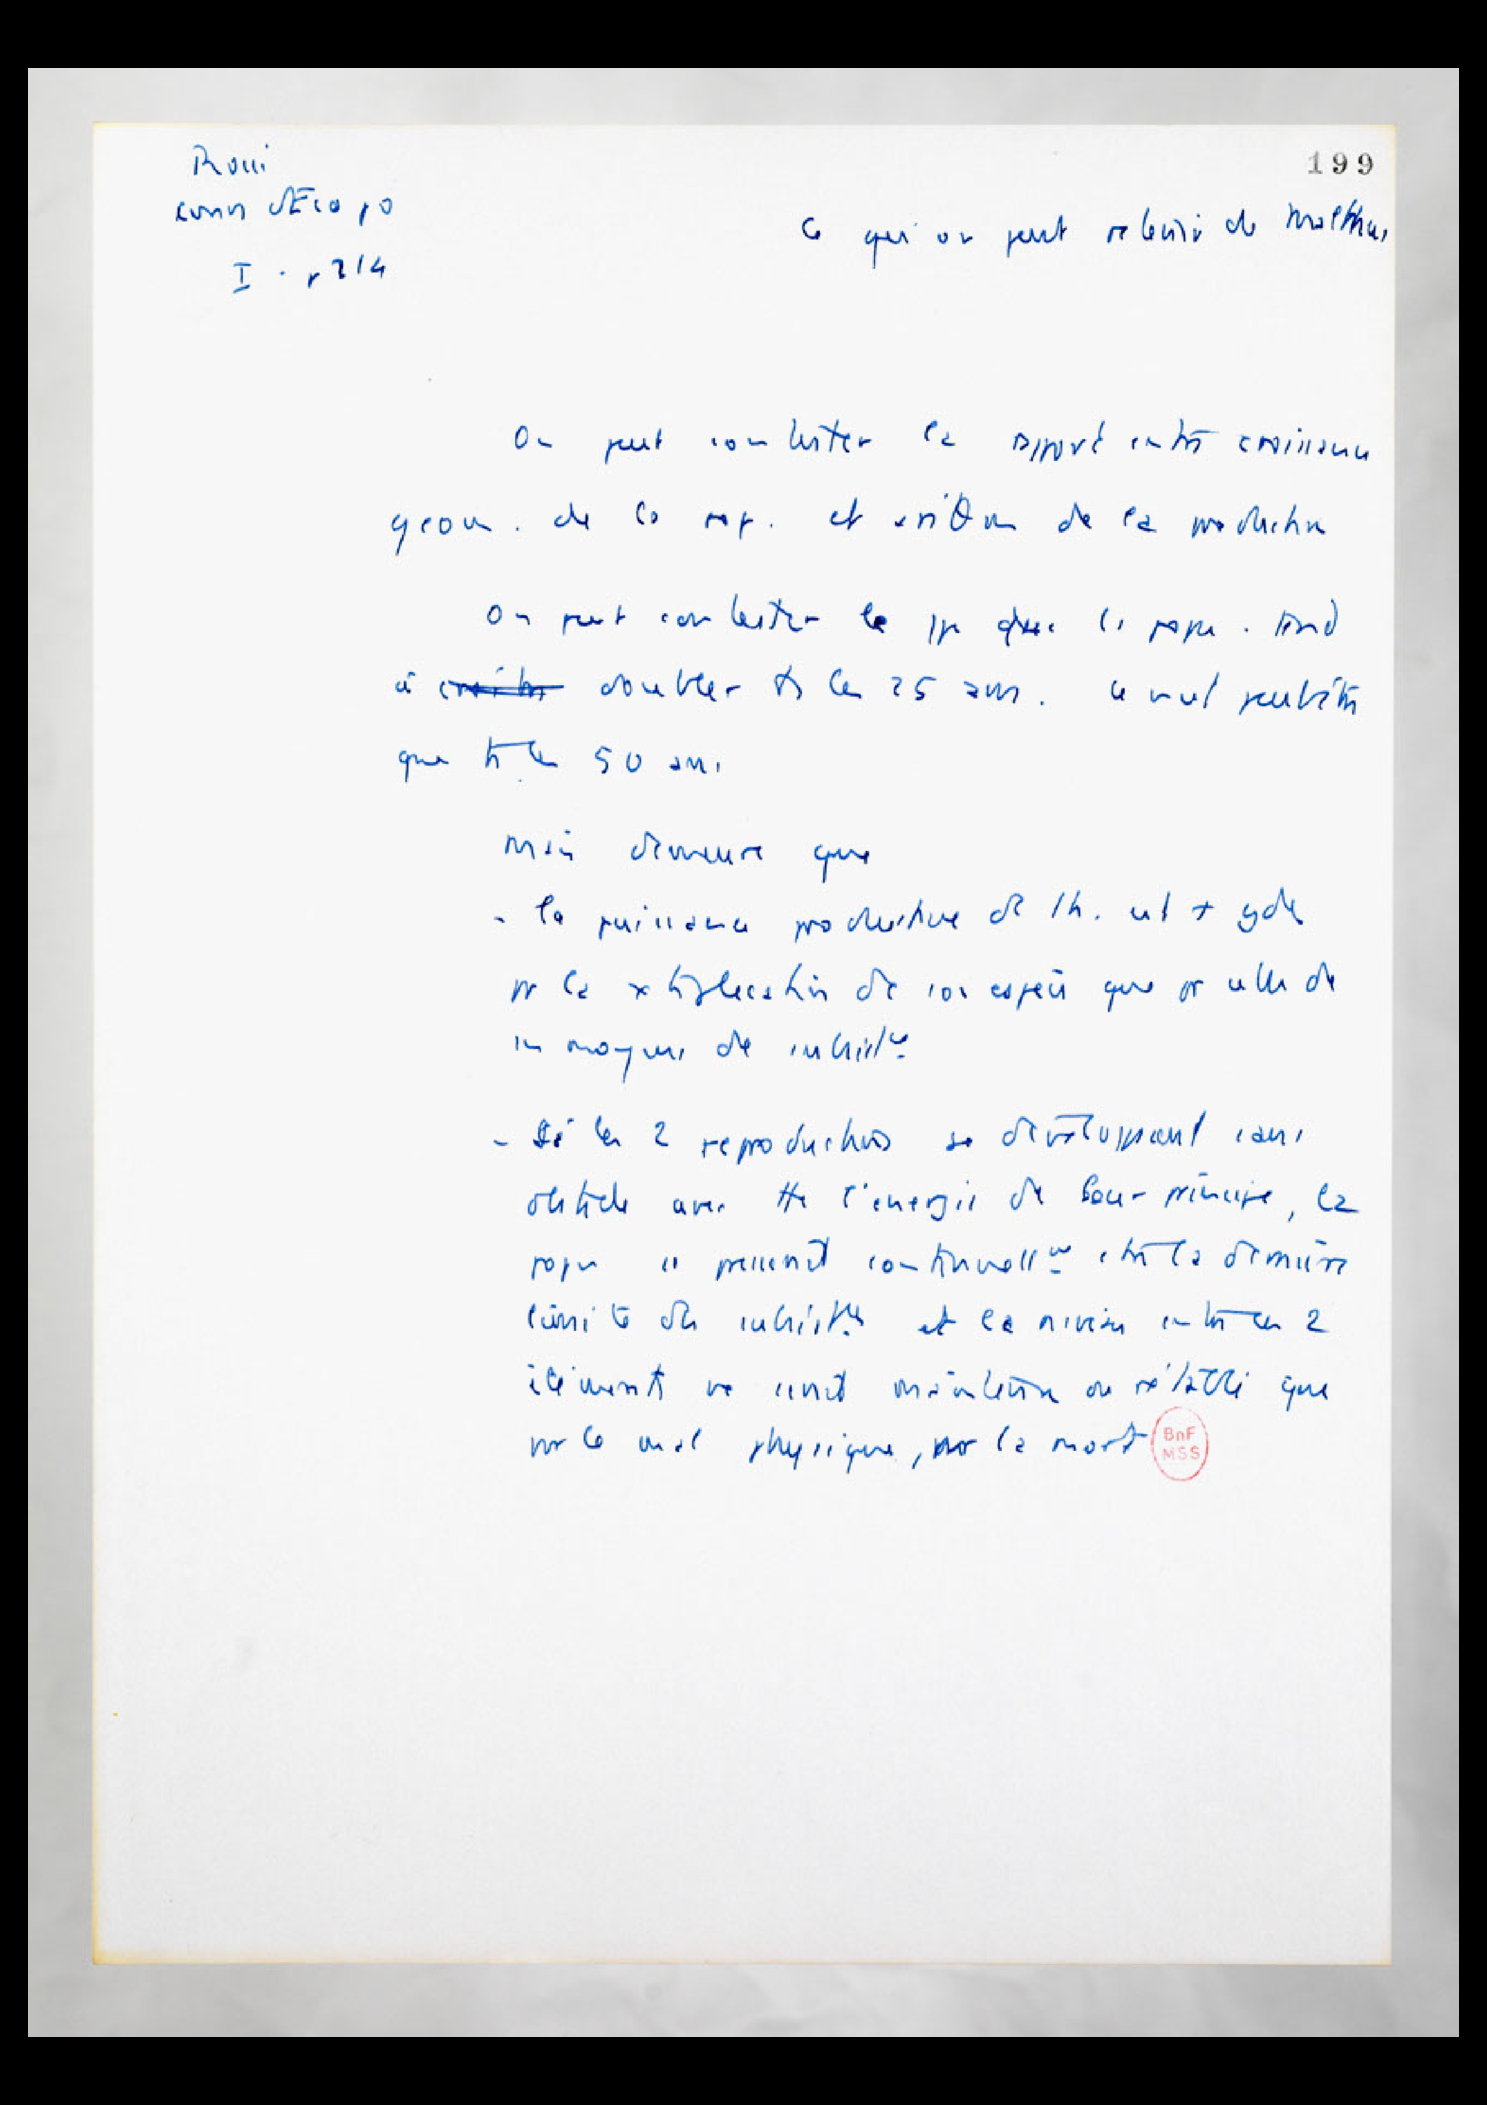 Rossi
cours d'Eco po
I . p 314
199
Ce qu'on peut retenir de Malthus
On peut contester le rapport entre croissance
géom. de la pop. et arithm de la production
On peut contester le pp que la popu. tend
à croître doubler ts les 25 ans. Ce n'est peut être
que ts les 50 ans
Mais demeure que
- la puissance productive de l'h. est + gde
pr la xtiplication de son espèce que pr celle de
ses moyens de subsistce
- Si les 2 reproductions se développaient sans
obstacle avec tte l'énergie de leur principe, la
popu se presserait continuellmt contre la dernière
limite des subsistces et le niveau entre les 2
éléments ne serait maintenu ou rétabli que
par le mal physique, par la mort
BnF
MSS